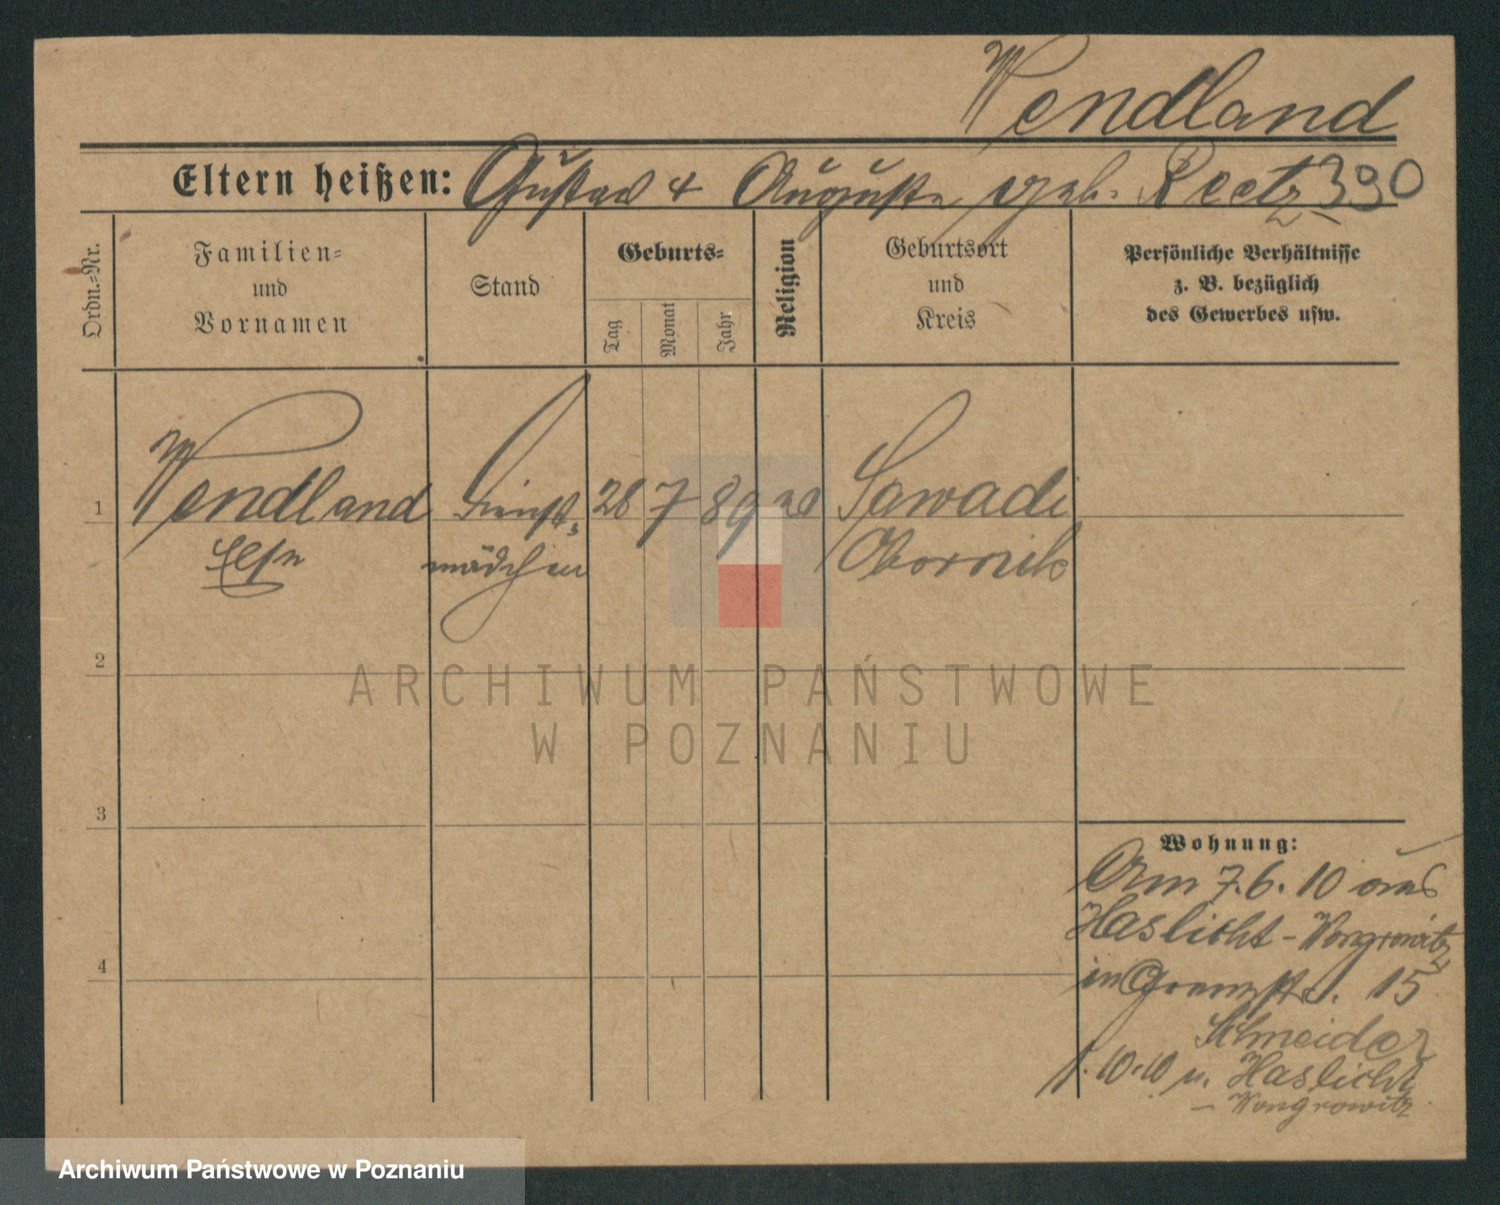 Wendland
Eltern heißen: Gustav & Auguste geb. Reetz 390
Ordn.-Nr.
Familien-
und
Vornamen
Stand
Geburts-
Tag
Monat
Jahr
Religion
Geburtsort
und
Kreis
Persönliche Verhältnisse
z. B. bezüglich
des Gewerbes usw.
1
Wendland
Dienst-
mädchen
28 7 89
Sawadi
Obornik
2
ARCHIWUM PAŃSTWOWE
W POZNANIU
3
4
Wohnung:
Am 7.6.10 aus
Haslicht - Wongrowitz
in 15
Schneider
1.10.10 n. Haslicht
- Wongrowitz
Archiwum Państwowe w Poznaniu